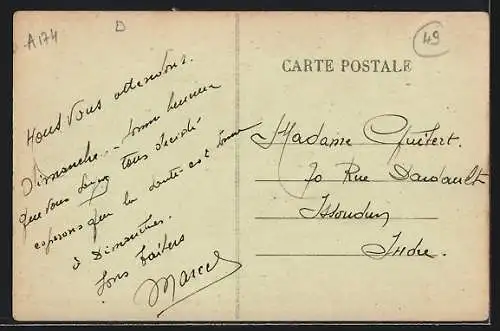 A174
D
49
CARTE POSTALE
Nous vous attendons.
Dimanche. - bonne
que vous tous décidé
espérons que la santé est bonne
à Dimanche.
bons baisers
Marcel
Madame
70 Rue Dardault
Issoudun
Indre.